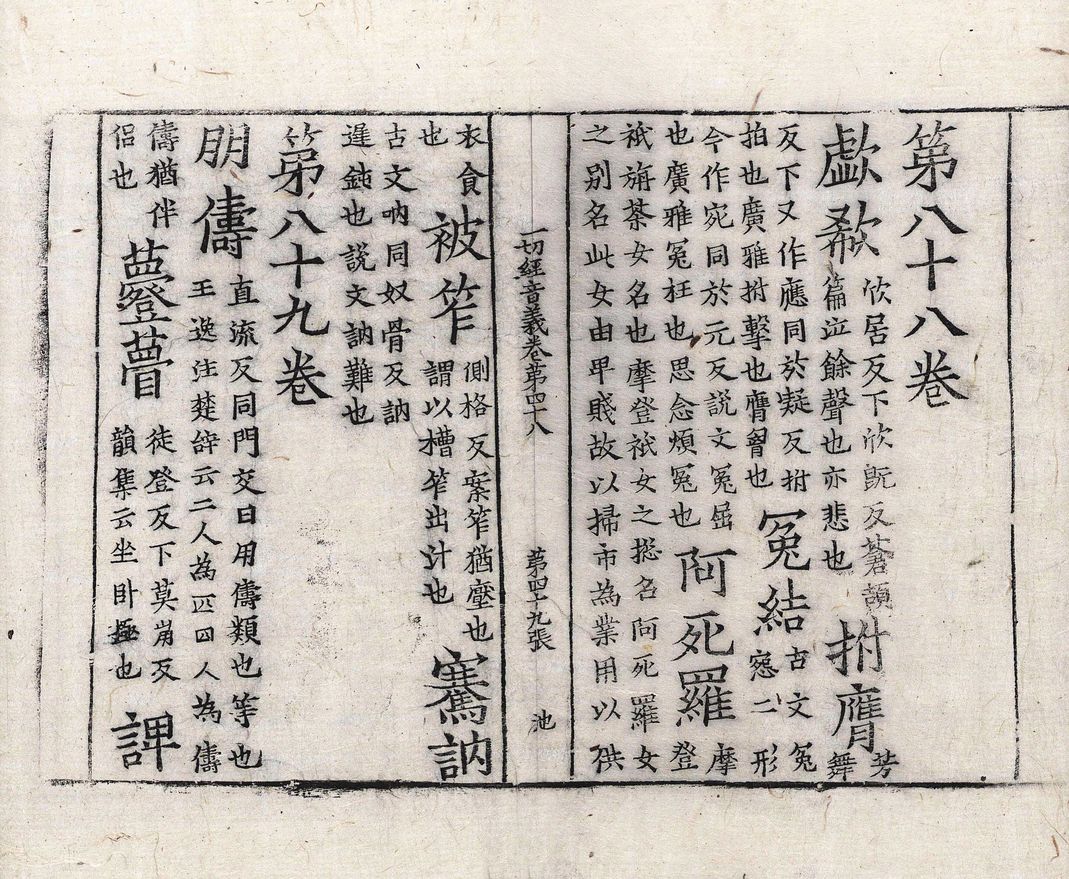 第八十八卷
歔欷
欣居反下欣旣反蒼頡
篇泣餘聲也亦悲也
拊膺
芳
舞
反下又作應同於疑反拊
拍也廣雅拊擊也膺匈也
冤結
古文冤
窓二形
今作宛同於元反說文冤屈
也廣雅冤枉也思念煩冤也
阿死羅
摩
登
祇旃荼女名也摩登祇女之揔名阿死羅女
之別名此女由卑賤故以掃市為業用以供
一切經音義卷第四十八 第四十九張 池
衣食
也
被笮
側格反案笮猶壓也
謂以槽笮出汁也
騫訥
古文吶同奴骨反訥
遲鈍也說文訥難也
第八十九卷
朋儔
直流反同門交日用儔類也等也
王逸注楚辞云二人為匹四人為儔
儔猶伴
侶也
瞢
徒登反下莫崩反
韻集云坐卧極也
諀